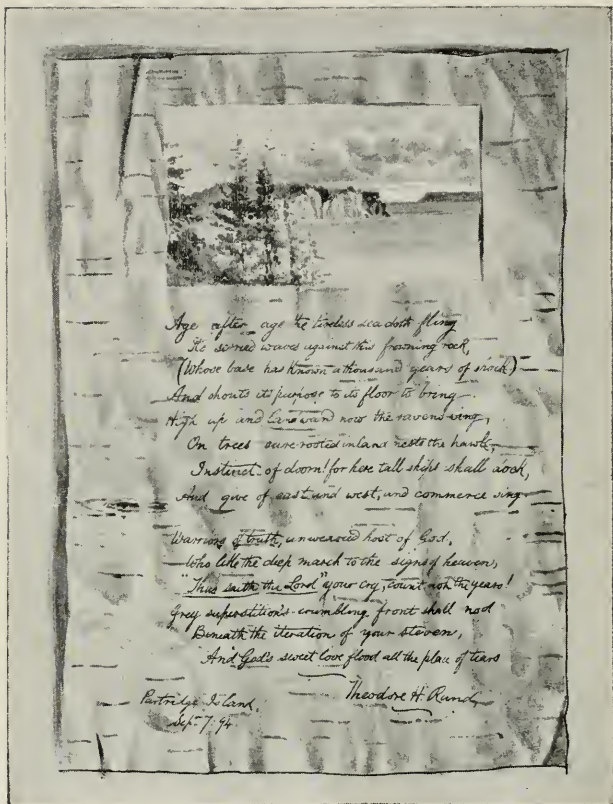 Age after age the tireless sea doth fling
Its serried waves against this frowning rock,
(Whose base has known a thousand years of shock)
And shouts its purpose to its floor to bring.
High up and landward now the ravens wing,
On trees sure-rooted inland nests the hawk,
Instinct of doom! for here tall ships shall dock,
And give of east and west, and commerce sing.
Warriors of truth, unwearied host of God,
Who like the deep march to the signs of heaven,
"Thus saith the Lord" your cry, count not the years!
Grey superstition's crumbling front shall nod
Beneath the iteration of your steven,
And God's sweet love flood all the place of tears
Theodore H. Rand
Partridge Island,
Sept. 7: 94.